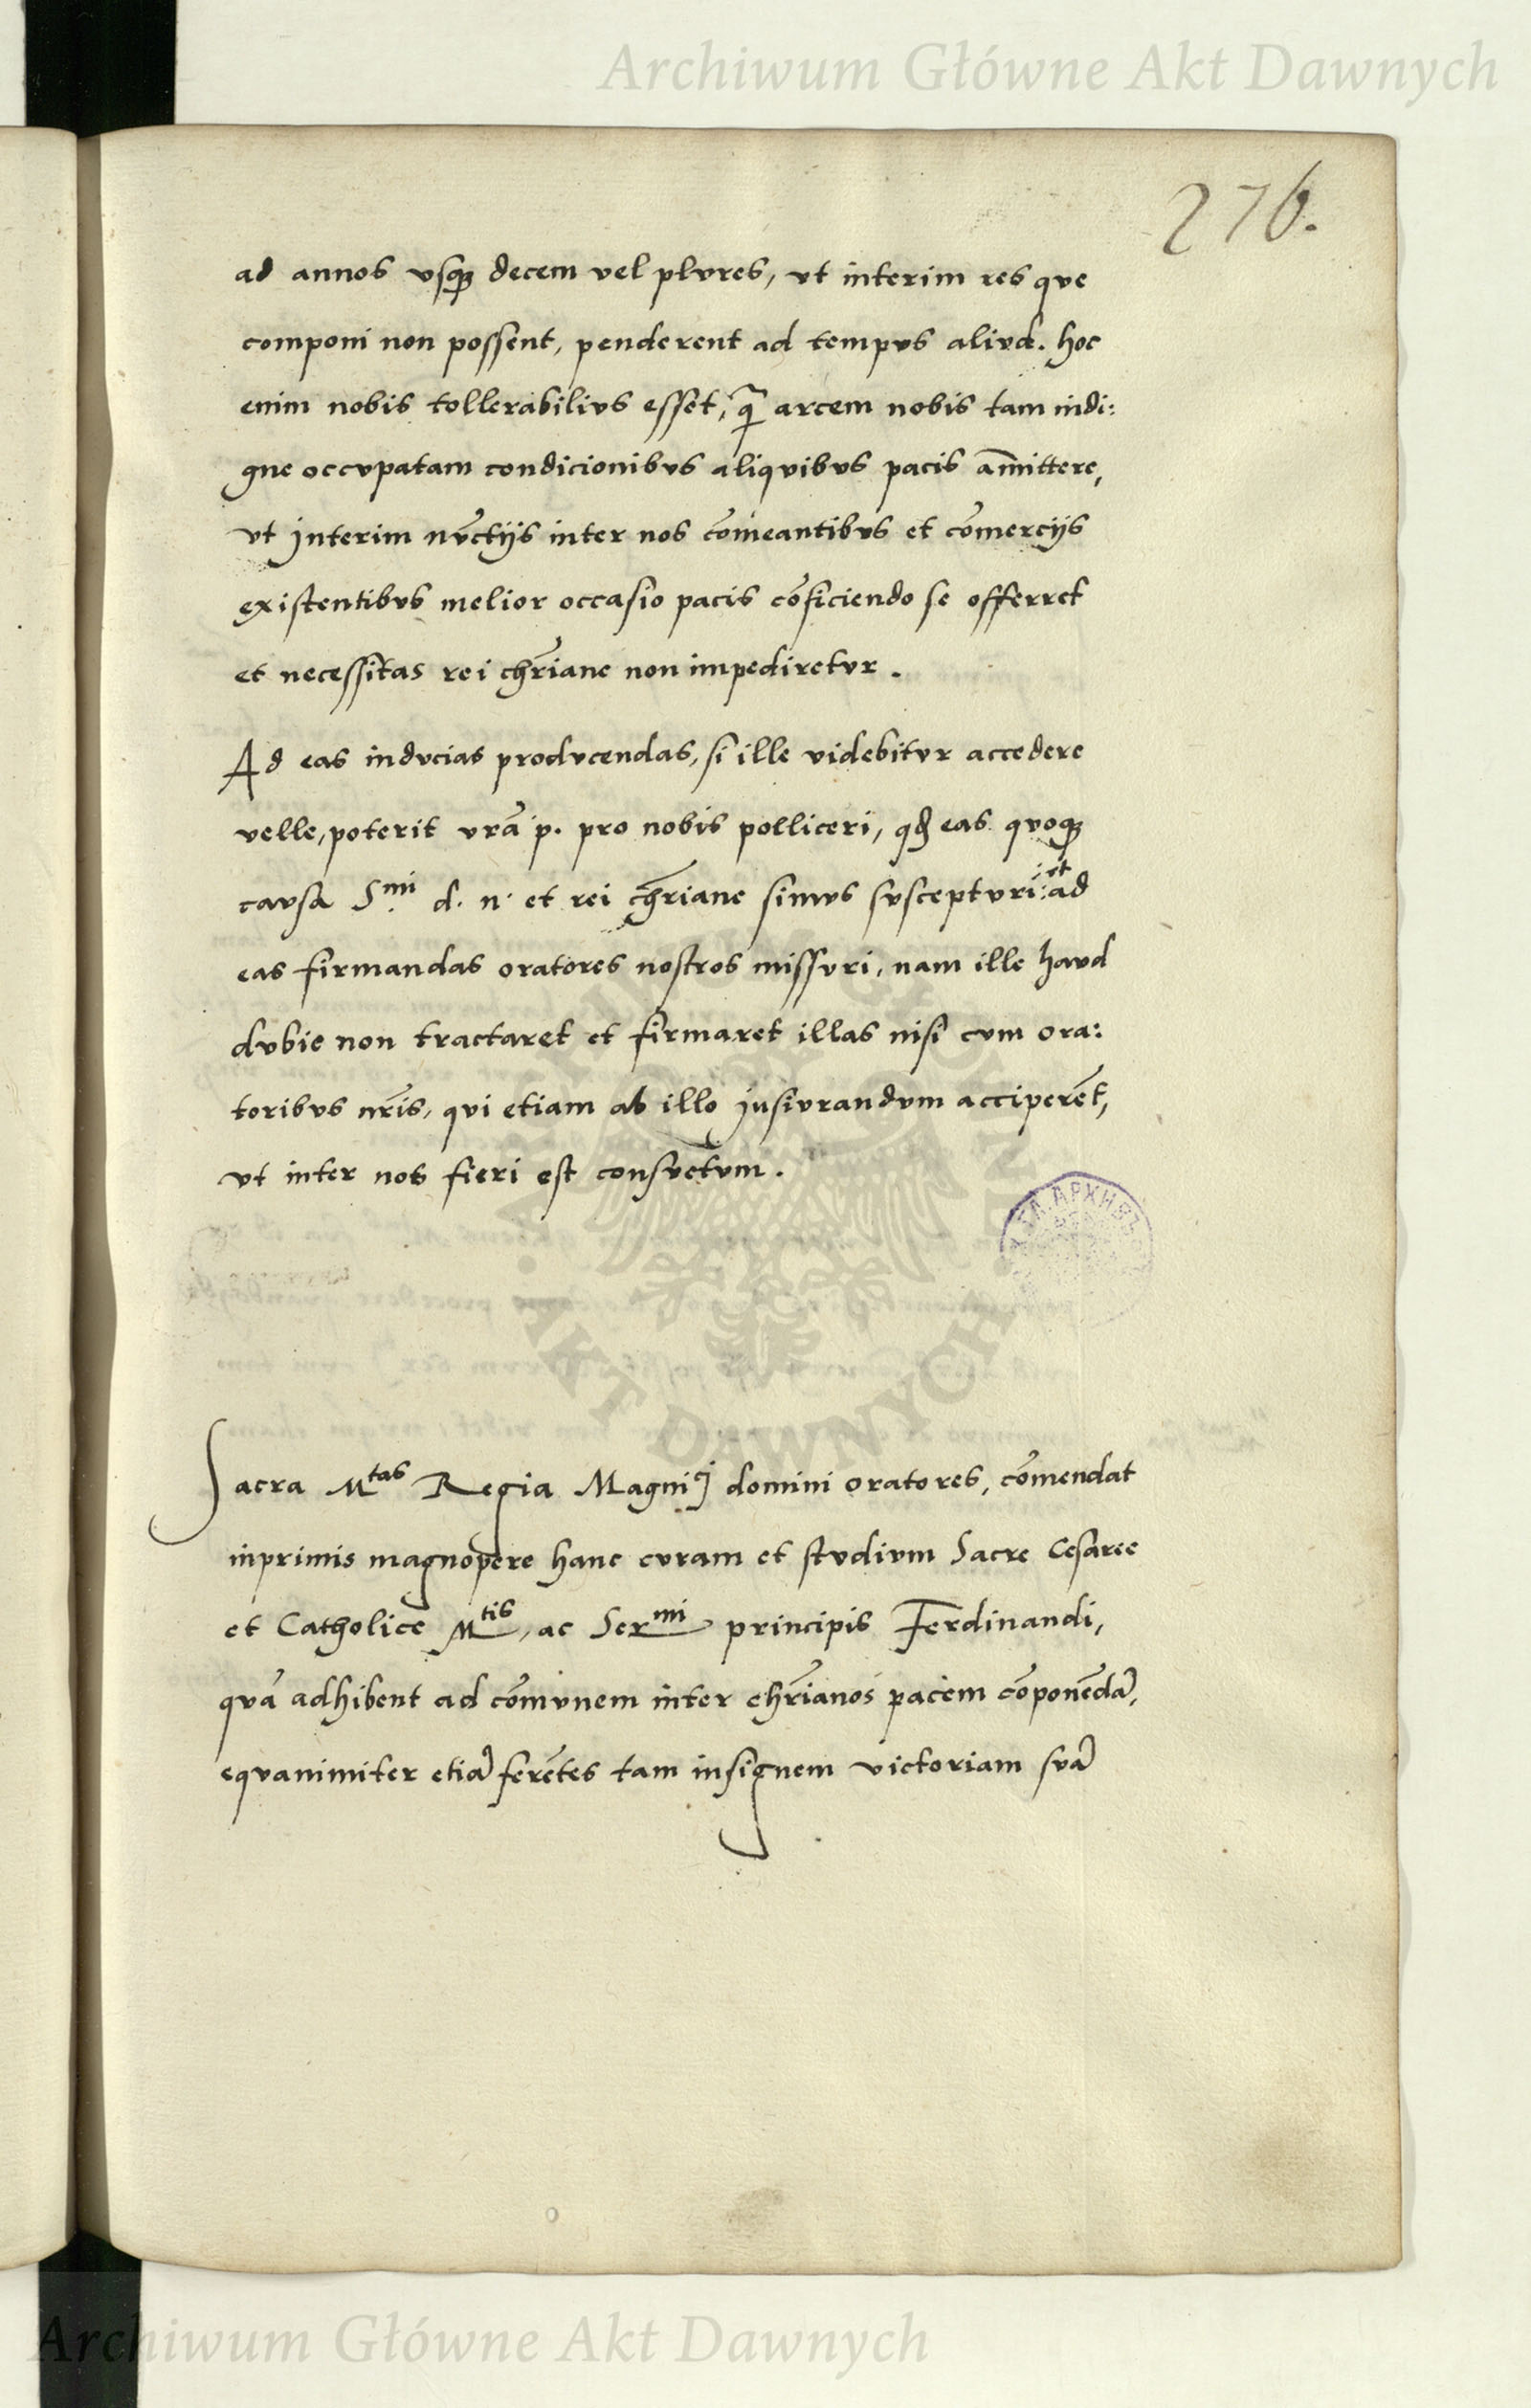 Archiwum Główne Akt Dawnych
276.
ad annos vsqꝫ decem vel plvres, vt interim res qve
componi non possent, penderent ad tempvs alivd. hoc
enim nobis tollerabilivs esset, q̃ arcem nobis tam indi:
gne occvpatam condicionibvs aliqvibvs pacis am̄ittere,
vt jnterim nv̄ctijs inter nos com̄eantibvs et com̄ercijs
existentibvs melior occasio pacis cōficiendo se offerret
et necessitas rei chr̄iane non impediretvr.
Ad eas indvcias prodvcendas, si ille videbitvr accedere
velle, poterit vrã p. pro nobis polliceri, qđ eas qvoqꝫ
cavsa S.mi d. n. et rei chr̄iane simvs svsceptvri: et ad
eas firmandas oratores nostros missvri, nam ille havd
dvbie non tractaret et firmaret illas nisi cvm ora:
toribvs nr̄is, qvi etiam ab illo jusivrandvm acciperēt,
vt inter nos fieri est consvetvm.
AKT DAWNYCH
Sacra Mtas Regia Magnicj domini oratores, com̄endat
inprimis magnopere hanc cvram et stvdivm Sacre Cesaree
et Catholice Mtis, ac Sermi principis Ferdinandi,
qvā adhibent ad com̄vnem inter chr̄ianos pacem cōponēdā,
eqvanimiter etiā ferētes tam insignem victoriam svā
Archiwum Główne Akt Dawnych